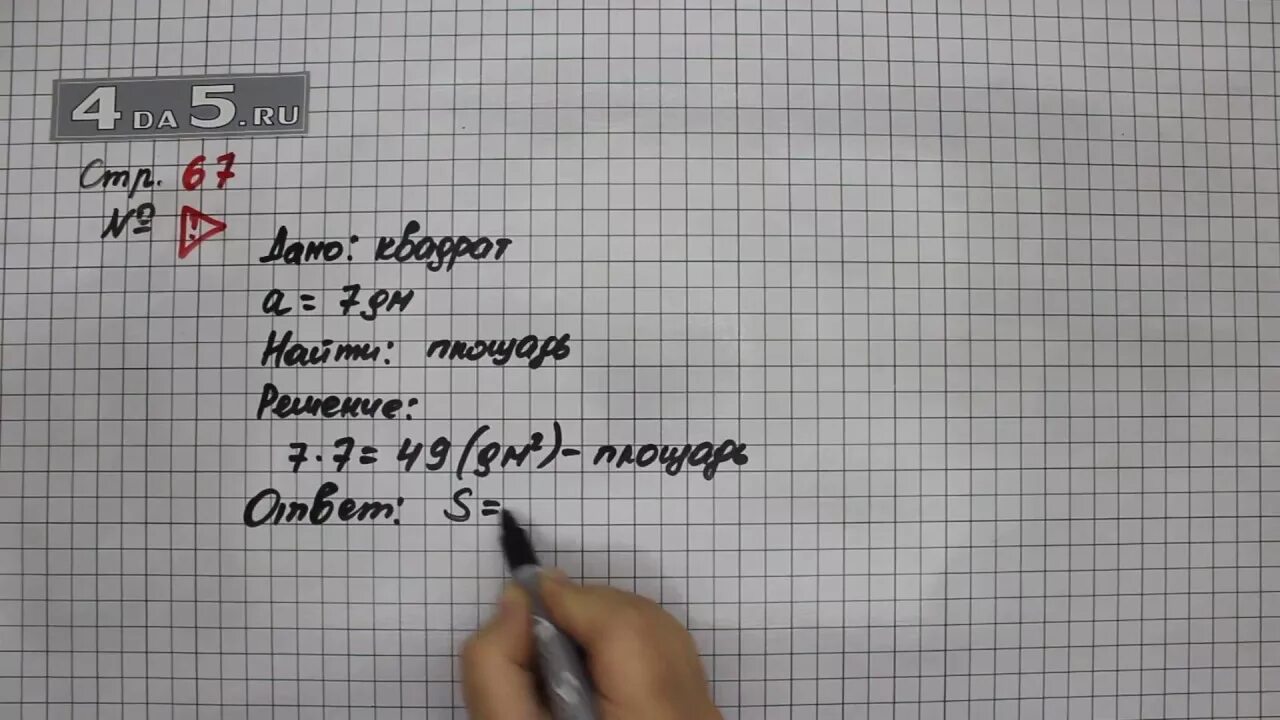 4DA5.RU
Стр. 67
№ !
Дано: квадрат
a = 7 дм
Найти: площадь
Решение:
7·7 = 49 (дм²) – площадь
Ответ: S =